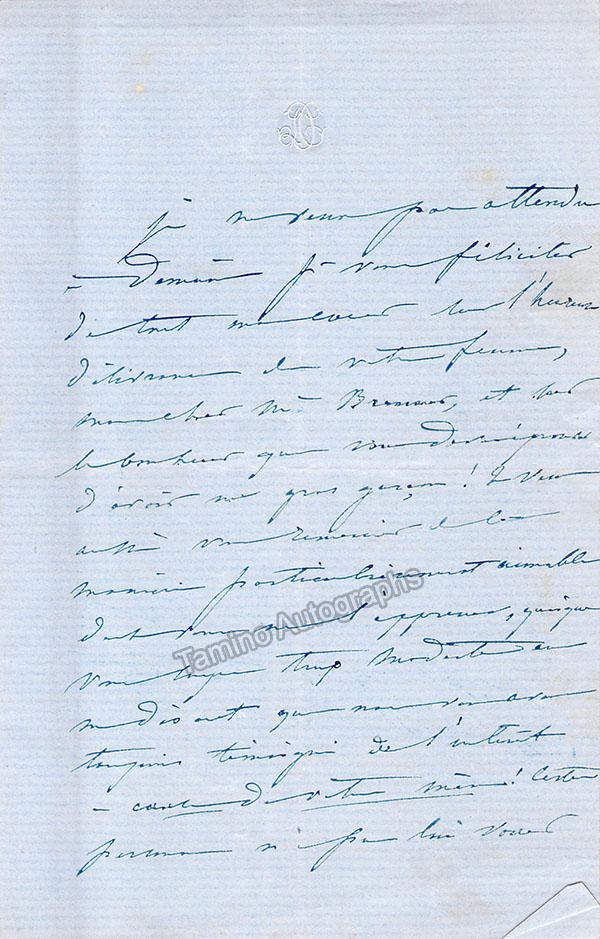 Je ne veux pas attendre
à Demain pr vous féliciter
de tout mon coeur sur l'heureuse
délivrance de votre femme,
mon cher Mr et sur
le bonheur que vous
d'avoir un gros garçon! Je veux
aussi vous remercier de la
manière particulièrement aimable
dont vous me l'apprenez, quoique
vous soyez trop modeste en
me disant que nous vous avons
toujours témoigné de l'intérêt
à cause de votre mère! Certes
personne n'a pu lui vouer
Tamino Autographs